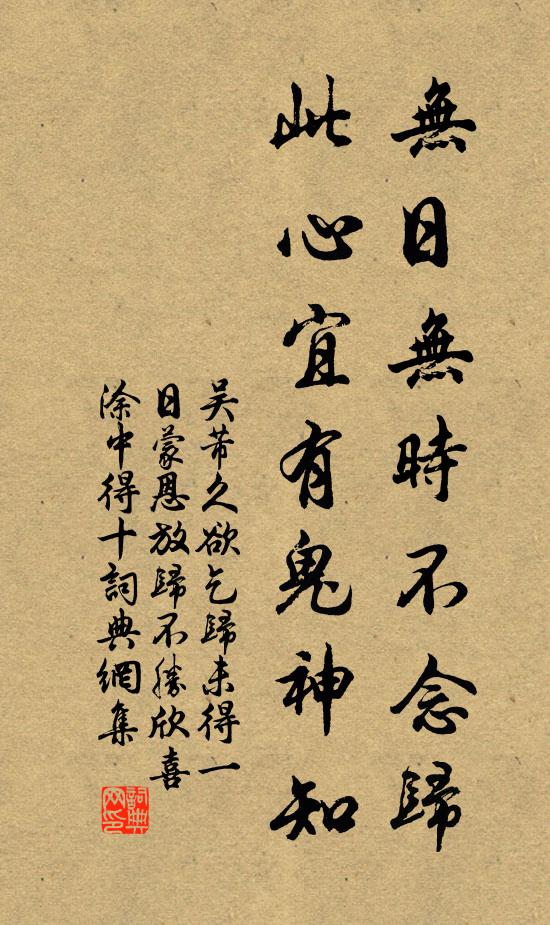 無日無時不念歸
此心宜有鬼神知
吴芾久欲乞歸未得一
日蒙恩放歸不勝欣喜
涂中得十詞典網集
詞典
网印